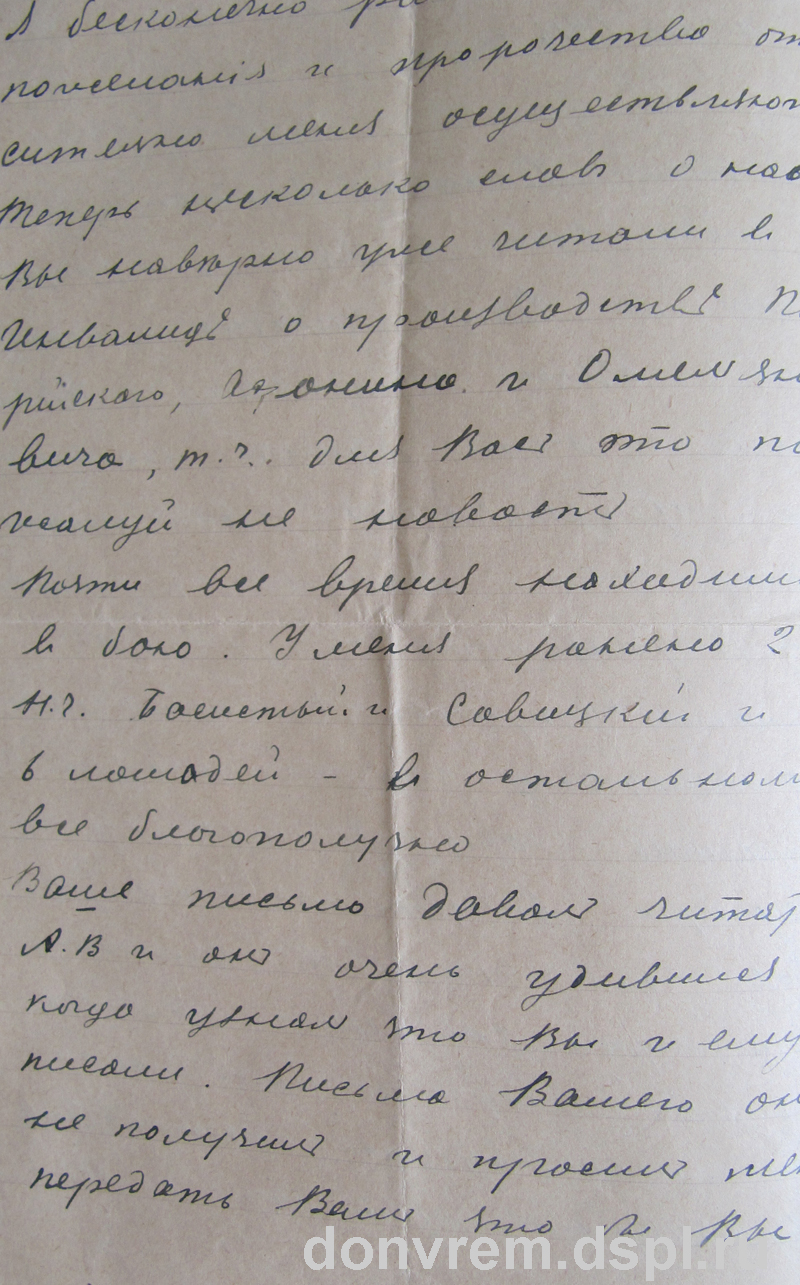 Я бесконечно
пожеланiя и пророчество от
сительно меня осуществляют
Теперь нѣсколько словъ о нас
Вы навѣрно уже читали в
Инвалидѣ о производствѣ П
рiйского, и Омельяно
вича, т.ч. для Васъ это по
жалуй не новость
Почти все время находим
в бою. У меня ранено 2
н.ч. Басистый и Савицкiй и
6 лошадей - в остальном
все благополучно
Ваше письмо давалъ читат
А.В и онъ очень удивился
когда узналъ что Вы и ему
писали. Письма Вашего он
не получилъ и просилъ мен
передать Вамъ что б Вы
donvrem.dspl.r